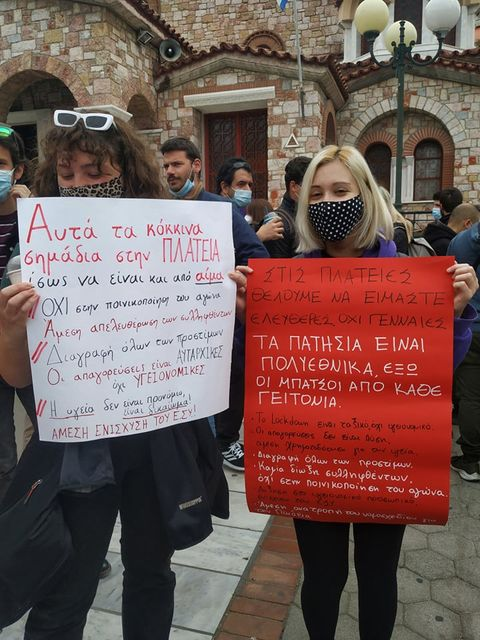 Αυτά τα κόκκινα
σημάδια στην ΠΛΑΤΕΙΑ
ίσως να είναι και από αίμα
ΟΧΙ στην ποινικοποίηση του αγώνα
Άμεση απελευθέρωση των συλληφθέντων
Διαγραφή όλων των προστίμων
Οι απαγορεύσεις είναι ΑΥΤΑΡΧΙΚΕΣ
όχι ΥΓΕΙΟΝΟΜΙΚΕΣ
Η υγεία δεν είναι προνόμιο,
είναι δικαίωμα!
ΑΜΕΣΗ ΕΝΙΣΧΥΣΗ ΤΟΥ Ε.Σ.Υ!
ΣΤΙΣ ΠΛΑΤΕΙΕΣ
ΘΕΛΟΥΜΕ ΝΑ ΕΙΜΑΣΤΕ
ΕΛΕΥΘΕΡΕΣ ΟΧΙ ΓΕΝΝΑΙΕΣ
ΤΑ ΠΑΤΗΣΙΑ ΕΙΝΑΙ
ΠΟΛΥΕΘΝΙΚΑ, ΕΞΩ
ΟΙ ΜΠΑΤΣΟΙ ΑΠΟ ΚΑΘΕ
ΓΕΙΤΟΝΙΑ.
Το Lockdown είναι ταξικό, όχι υγειονομικό.
Οι απαγορεύσεις δεν είναι λύση,
άμεση χρηματοδότηση για την υγεία.
Διαγραφή όλων των προστίμων.
Καμία δίωξη συλληφθέντων,
όχι στην ποινικοποίηση του αγώνα.